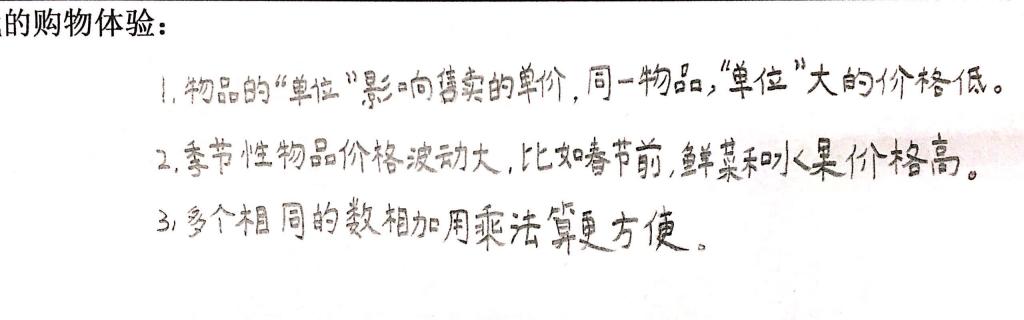 的购物体验：
1.物品的“单位”影响售卖的单价，同一物品，“单位”大的价格低。
2.季节性物品价格波动大，比如春节前，鲜菜和水果价格高。
3,多个相同的数相加用乘法算更方便。